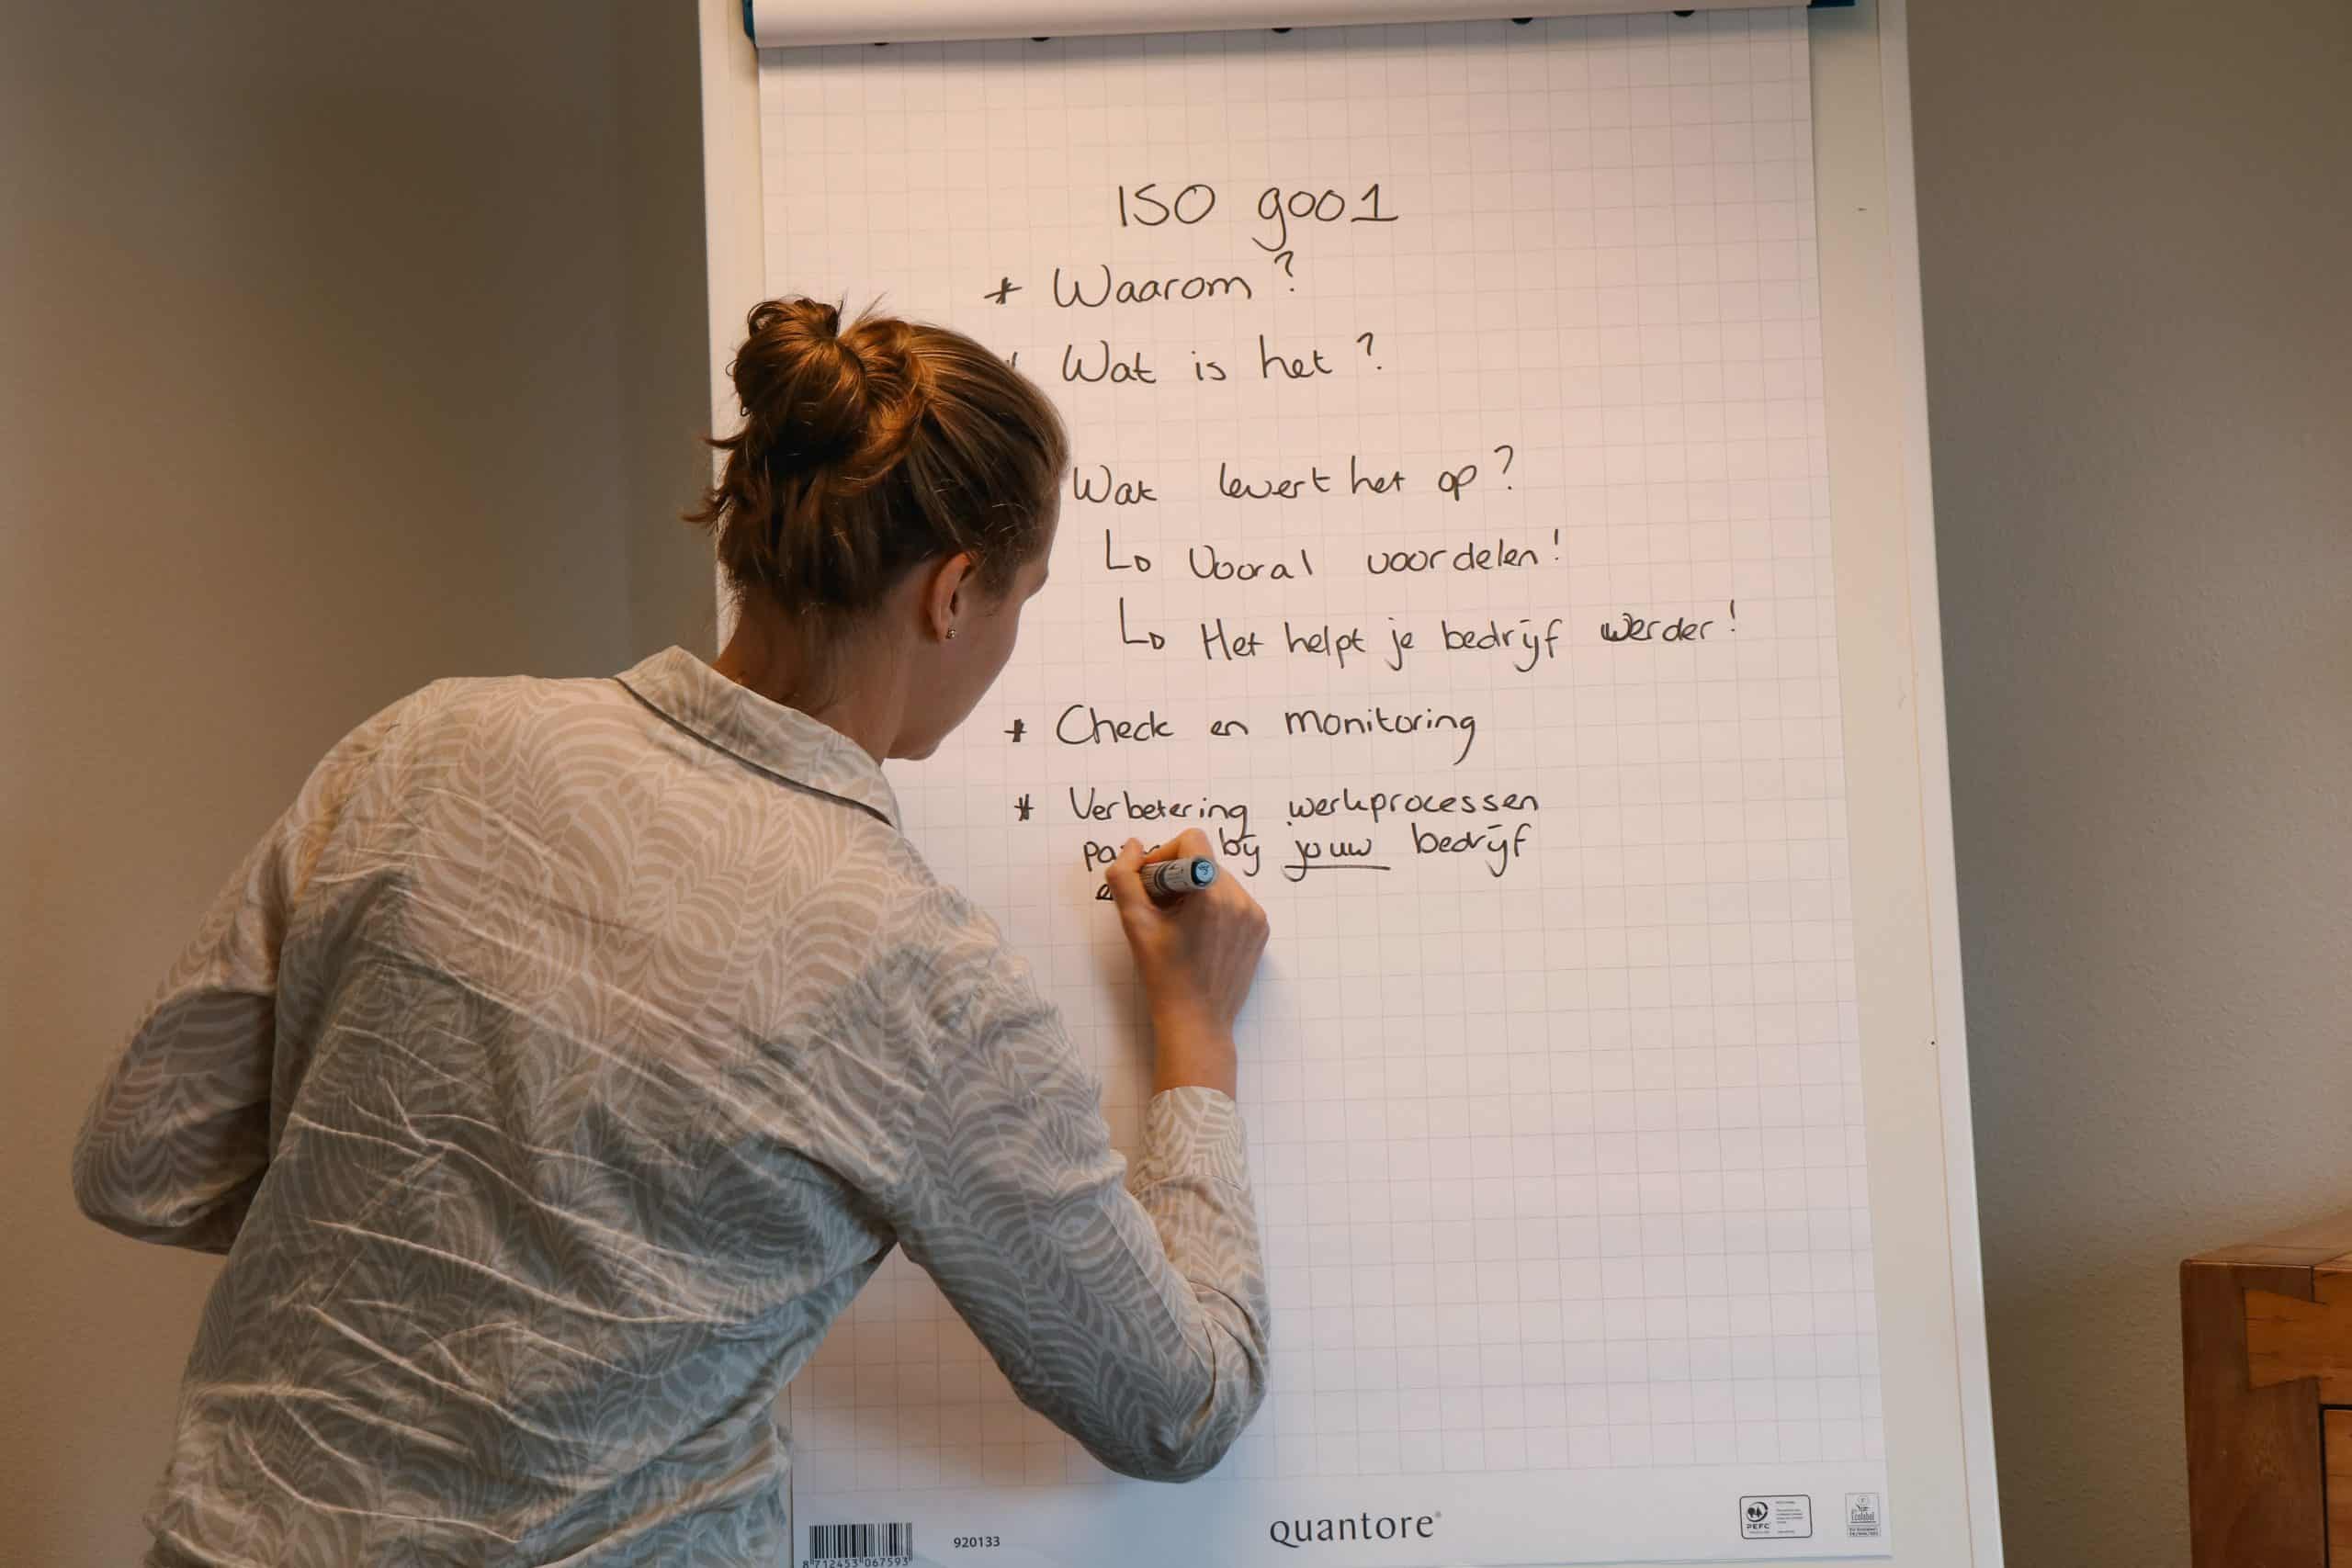 ISO 9001
* Waarom?
Wat is het?
Wat levert het op?
↳ Vooral voordelen!
↳ Het helpt je bedrijf werder!
* Check en monitoring
* Verbetering werkprocessen
bij jouw bedrijf
quantore®
920133
8 712453 067593
PEFC
Ecolabel